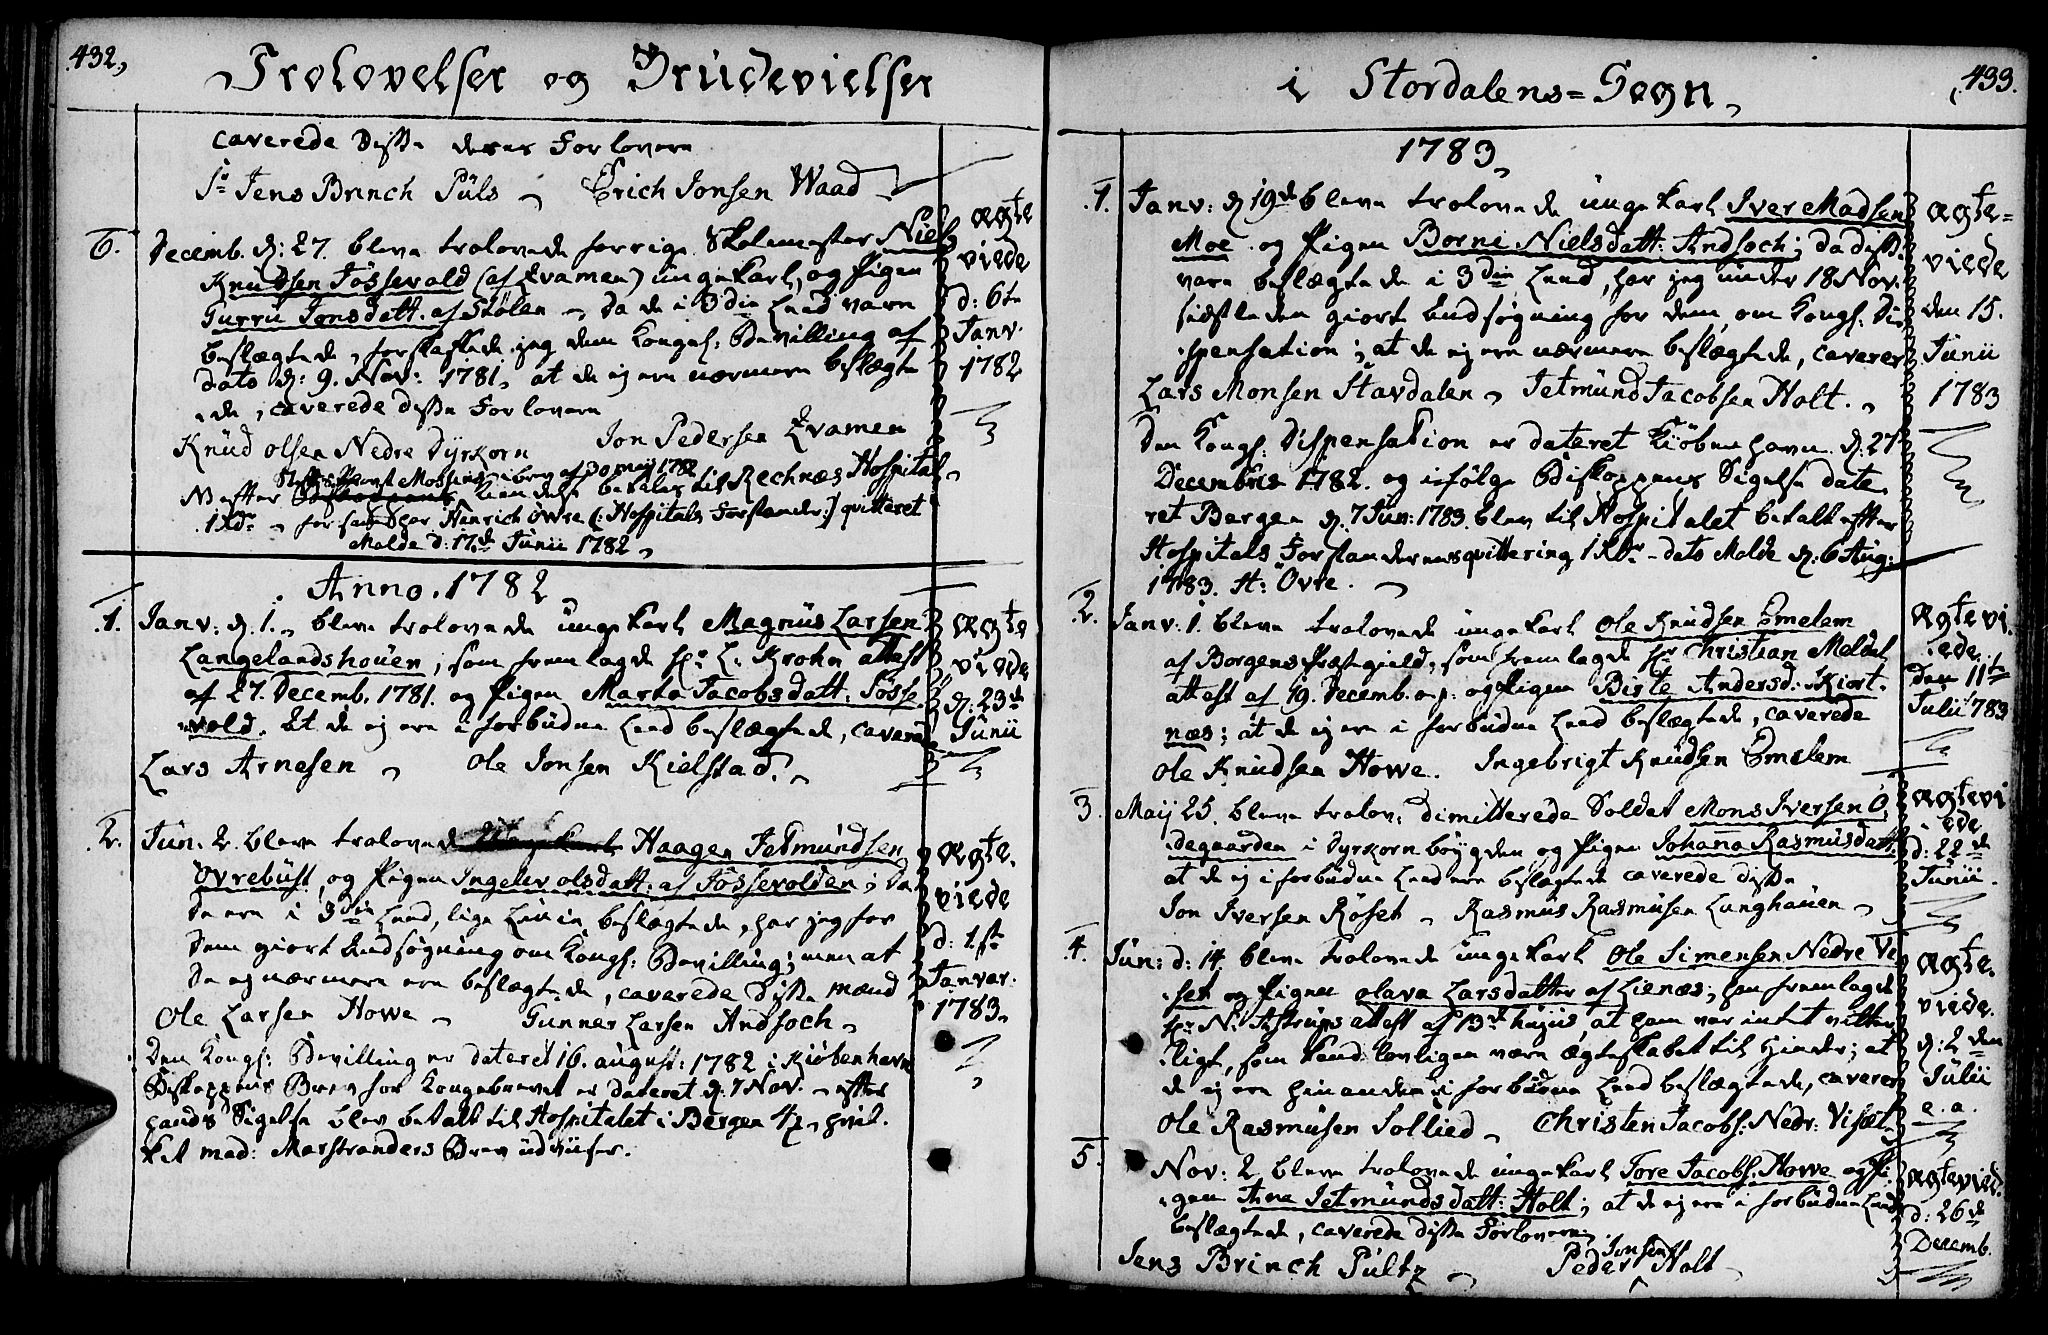 432,
Trolovelser og Brudevielser
caverede disse deres Forlovere
Sr Jens Brinch Püls Erich Jonsen Waad
6. Decemb. d: 27. bleve trolovede forrige Skolemester Niels
Knudsen Fössevold (af Evamen) ungekarl, og Pigen
Gurru Jonsdatt: af Stölen da de i 3die Leed vare
beslægtede, forskaffede jeg dem Kongel: Bevilling af
dato d: 9. Nov: 1781, at de ej ere nærmere beslægte
de, caverede disse Forlovere
Knud Olsen Nedre Dyrkorn Jon Pedersen Evamen
Stifts Provst Mossins brev af 30 maij 1782
efter betales til Rechnæs Hospital
1 Rdr for som har Henrich Övre (: Hospitals Forstander:) qvitteret
Molde d: 17de Junii 1782
ægte
viede
d: 6te
Janv.
1782
Anno. 1782
1. Janv: d. 1. bleve trolovede ungekarl Magnus Larsen
Langelandshouen, som fremlagde Hr. L. Krohn attest
af 27. Decemb. 1781. og Pigen Marta Jacobsdatt: Fösse
vold. At de ej ere i forbudne Leed beslægtede, cavered
Lars Arnesen Ole Jonsen Kielstad.
ægte
viede
d: 23de
Junii
2. Jun. 2. bleve trolovede Haagen Jetmundsen
Övrebust, og Pigen Ingelev Olsdatt: af Fössevolden; da
de ere i 3die Leed, lige Linie beslægtede, har jeg for
dem giort Ansøgning om Kongl: Bevilling; men at
de ej nærmere ere beslægtede, caverede disse mænd
Ole Larsen Howe Gunner Larsen Andsoch
Den Kongl: Bevilling er dateret 16. august: 1782 i Kiöbenhavn
Biskoppens Brev for Kongebrevet er dateret d. 7 Nov. efter
hands Sigelse blev betalt til Hospitalet i Bergen 4 hvil
ket mad: Marstranders Brev udviiser.
ægte.
viede
d: 1ste
Janvar.
1783
i Stordalens=Sogn
433.
1783
1. Janv: d 19de bleve trolovede ungekarl Iver Madsen
Moe og Pigen Borni Nielsdatt: Andsoch; da disse
vare beslægtede i 3die Leed, har jeg under 18 Nov.
sidstleden giort Ansøgning for dem om Kongl: Di
spensation; at de ej ere nærmere beslægtede, caverer
Lars Monsen Stavdalen Jetmund Jacobsen Holt.
Den Kongl: Dispensation er dateret Kiöbenhavn d. 27
Decembris 1782. og ifölge Biskoppens Sigelse date
ret Bergen d. 7 Jun: 1783. blev til Hospitalet betalt efter
Hospitals Forstanderens qvittering 1 Rdr dato Molde d: 6 Aug:
1783. H: Övre.
ægte=
viede
den 15.
Junii
1783
2. Janv: 1. bleve trolovede ungekarl Ole Knudsen Emelem
af Borgens Præstegield, som fremlagde Hr Christian Meldal
attest af 19. Decemb. a.p: og Pigen Birte Andersd: Kiort
næs; at de ej ere i forbudne Leed beslægtede, caverede
Ole Knudsen Howe. Ingebrigt Knudsen Emelem
ægtevi
ede
den 11te
Julii 1783
3. Maij 25. bleve trolov: dimitterede Soldat Mons Iversen Ö
degaarden i Dyrkornböygden og Pigen Johana Rasmusdatt:
at de ej i forbudne Leed ere beslægtede caverede disse
Jon Iversen Röset Rasmus Rasmusen Langhauen
ægtevi
ede
d: 22de
Junii.
4. Jun: d: 14 bleve trolovede ungekarl Ole Simensen Nedre Vi
set og Pigen Olava Larsdatter af Lienæs; han fremlagde
Hr N: Astrups attest af 13de hujus, at ham var intet vitter
ligt, som kand lovligen være Ægteskabet til Hinder; at
de ej ere hinanden i forbudne Leed beslægtede, caverer
Ole Rasmusen Sollied Christen Jacobs: Nedr: Viset
ægte.
viede.
d: 2den
Julii
e. a.
5. Nov: 2 bleve trolovede ungekarl Tore Jacobs: Howe og Pi
gen Ane Jetmundsdatt: Holt; at de ej ere i forbudne Leed
beslægtede, caverede disse Forlovere
Jens Brinch Pültz Peder Jonsen Holt
ægtevied.
d: 26de
Decemb.